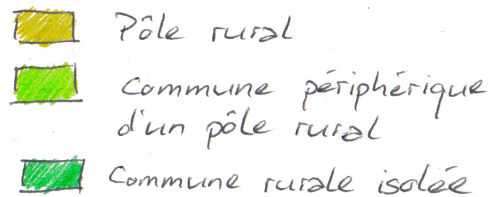 Pôle rural
Commune périphérique
d'un pôle rural
Commune rurale isolée